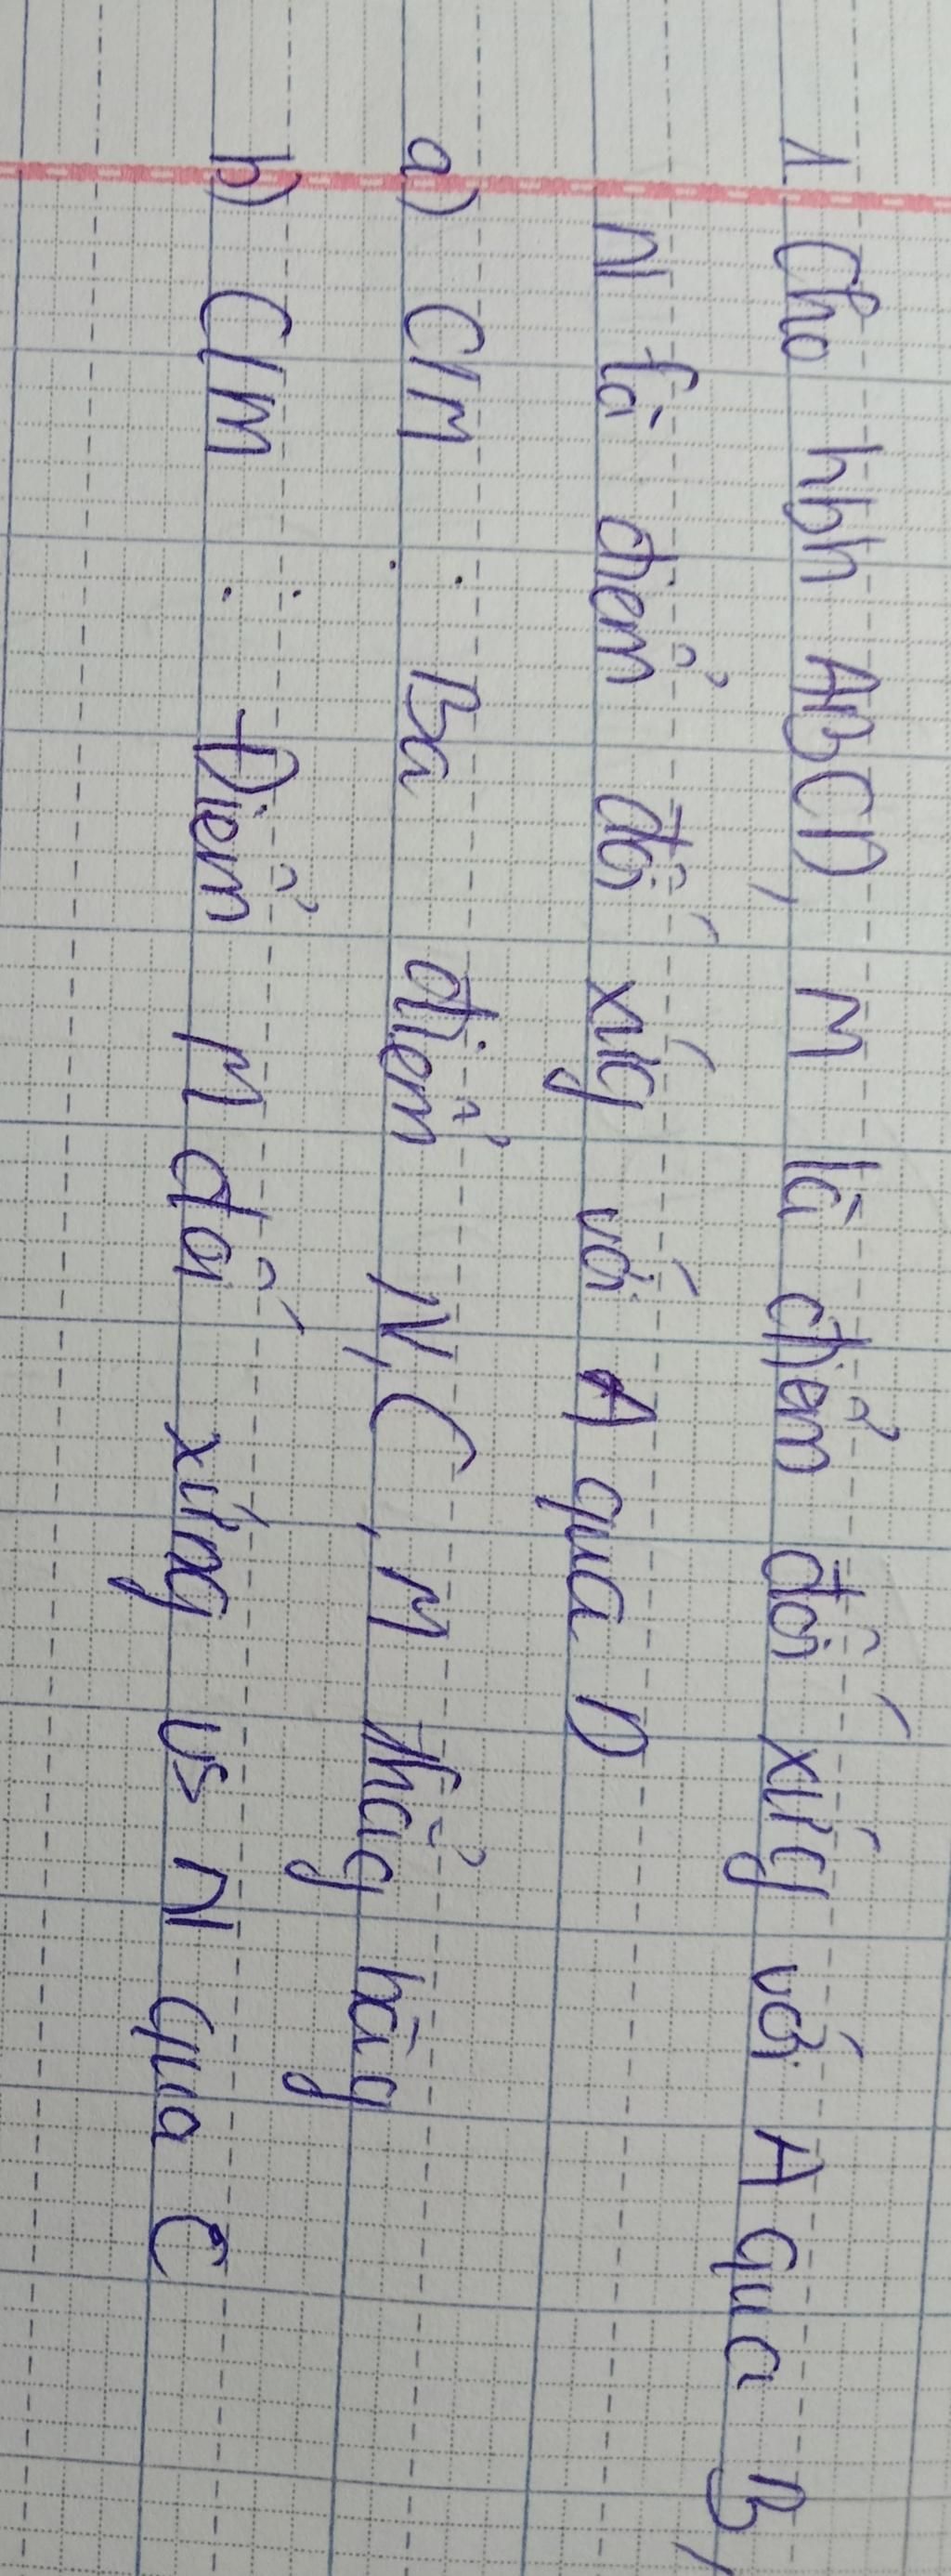 1. Cho hbh ABCD, M là điểm đối xứg với A qua B,
N là điểm đối xứg với A qua D
a) C/m : Ba điểm N, C, M thẳg hàg
b) C/m : Điểm M đối xứng vs N qua C